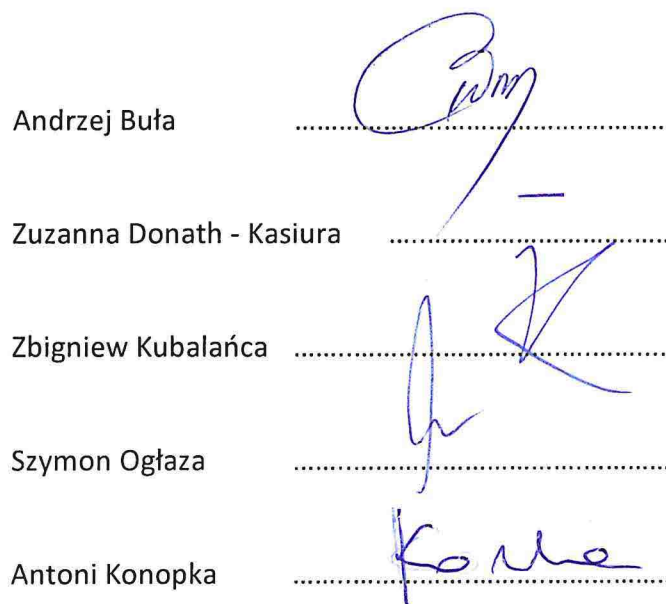 Andrzej Buła ..............................
Zuzanna Donath - Kasiura ..............................
Zbigniew Kubalańca ..............................
Szymon Ogłaza ..............................
Antoni Konopka ..............................